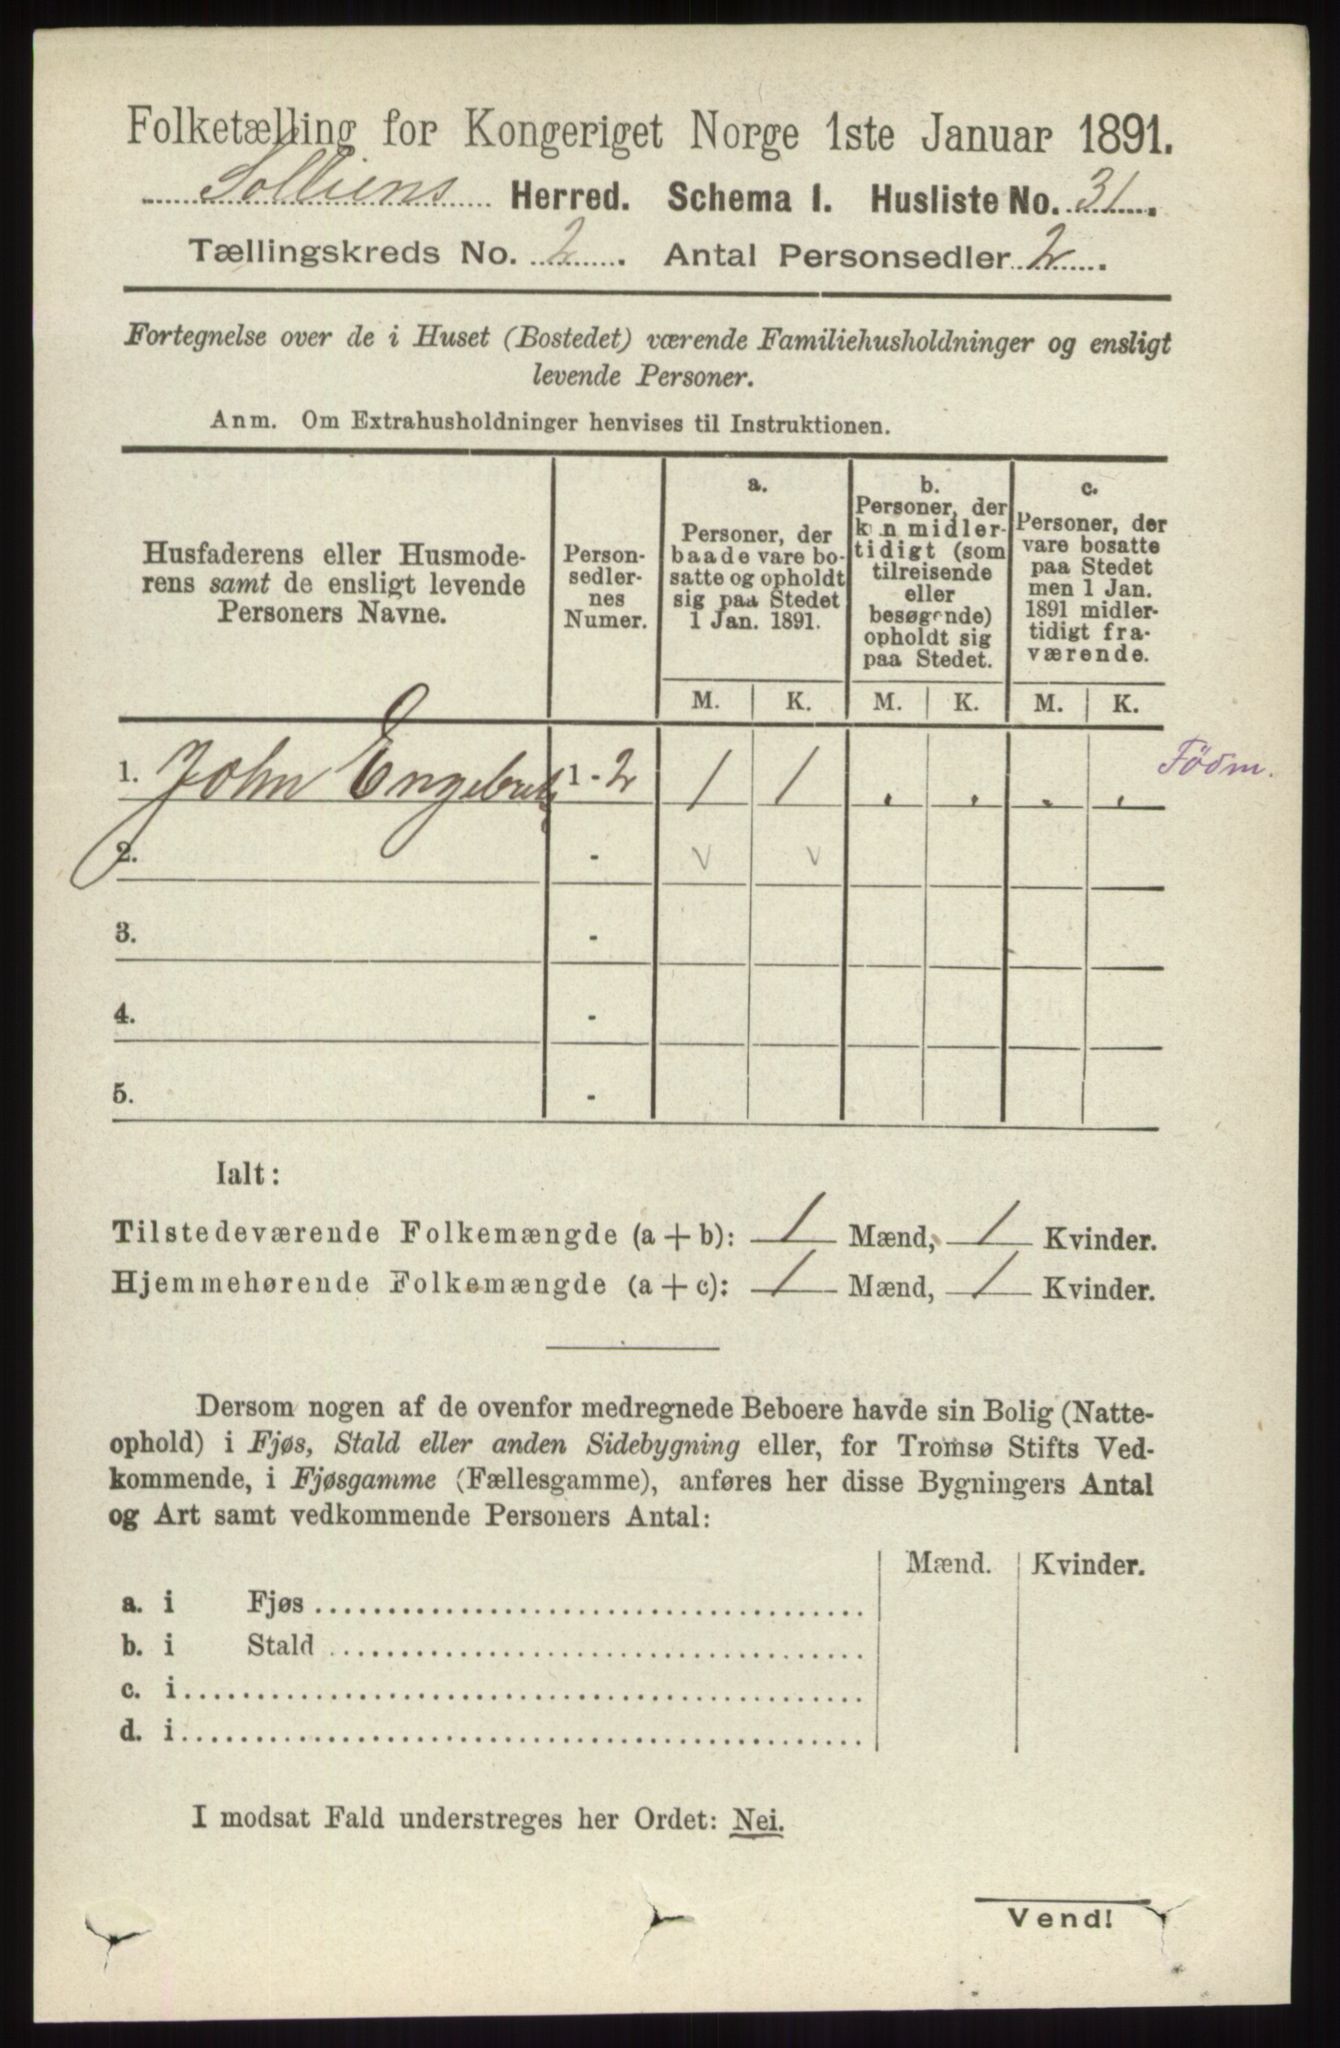 Folketælling for Kongeriget Norge 1ste Januar 1891.
Solliens Herred. Schema I. Husliste No. 31.
Tællingskreds No. 2. Antal Personsedler 2.
Fortegnelse over de i Huset (Bostedet) værende Familiehusholdninger og ensligt
levende Personer.
Anm. Om Extrahusholdninger henvises til Instruktionen.
Husfaderens eller Husmode-
rens samt de ensligt levende
Personers Navne.
Person-
sedler-
nes
Numer.
a.
Personer, der
baade vare bo-
satte og opholdt
sig paa Stedet
1 Jan. 1891.
b.
Personer, der
kun midler-
tidigt (som
tilreisende
eller
besøgende)
opholdt sig
paa Stedet.
c.
Personer, der
vare bosatte
paa Stedet
men 1 Jan.
1891 midler-
tidigt fra-
værende.
M. K. M. K. M. K.
1. John 1 - 2 1 1 . . . . Födm.
2. - v v
3. -
4. -
5. -
Ialt:
Tilstedeværende Folkemængde (a + b): 1 Mænd, 1 Kvinder.
Hjemmehørende Folkemængde (a + c): 1 Mænd, 1 Kvinder.
Dersom nogen af de ovenfor medregnede Beboere havde sin Bolig (Natte-
ophold) i Fjøs, Stald eller anden Sidebygning eller, for Tromsø Stifts Ved-
kommende, i Fjøsgamme (Fællesgamme), anføres her disse Bygningers Antal
og Art samt vedkommende Personers Antal:
Mænd. Kvinder.
a. i Fjøs
b. i Stald
c. i
d. i
I modsat Fald understreges her Ordet: Nei.
Vend!